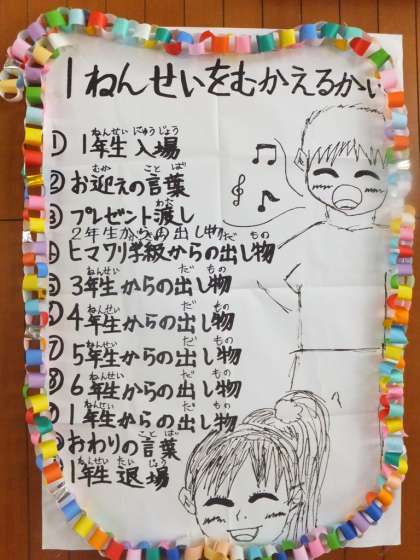 1ねんせいをむかえるかい
ねんせい にゅうじょう
① 1年生 入場
むか ことば
② お迎えの言葉
わた
③ プレゼント渡し
2年生からの出し物
だ もの
④ ヒマワリ学級からの出し物
ねんせい だ もの
⑤ 3年生からの出し物
ねんせい だ もの
⑥ 4年生からの出し物
ねんせい だ もの
⑦ 5年生からの出し物
ねんせい だ もの
⑧ 6年生からの出し物
ねんせい だ もの
⑨ 1年生からの出し物
ことば
おわりの言葉
ねんせい たいじょう
1年生 退場